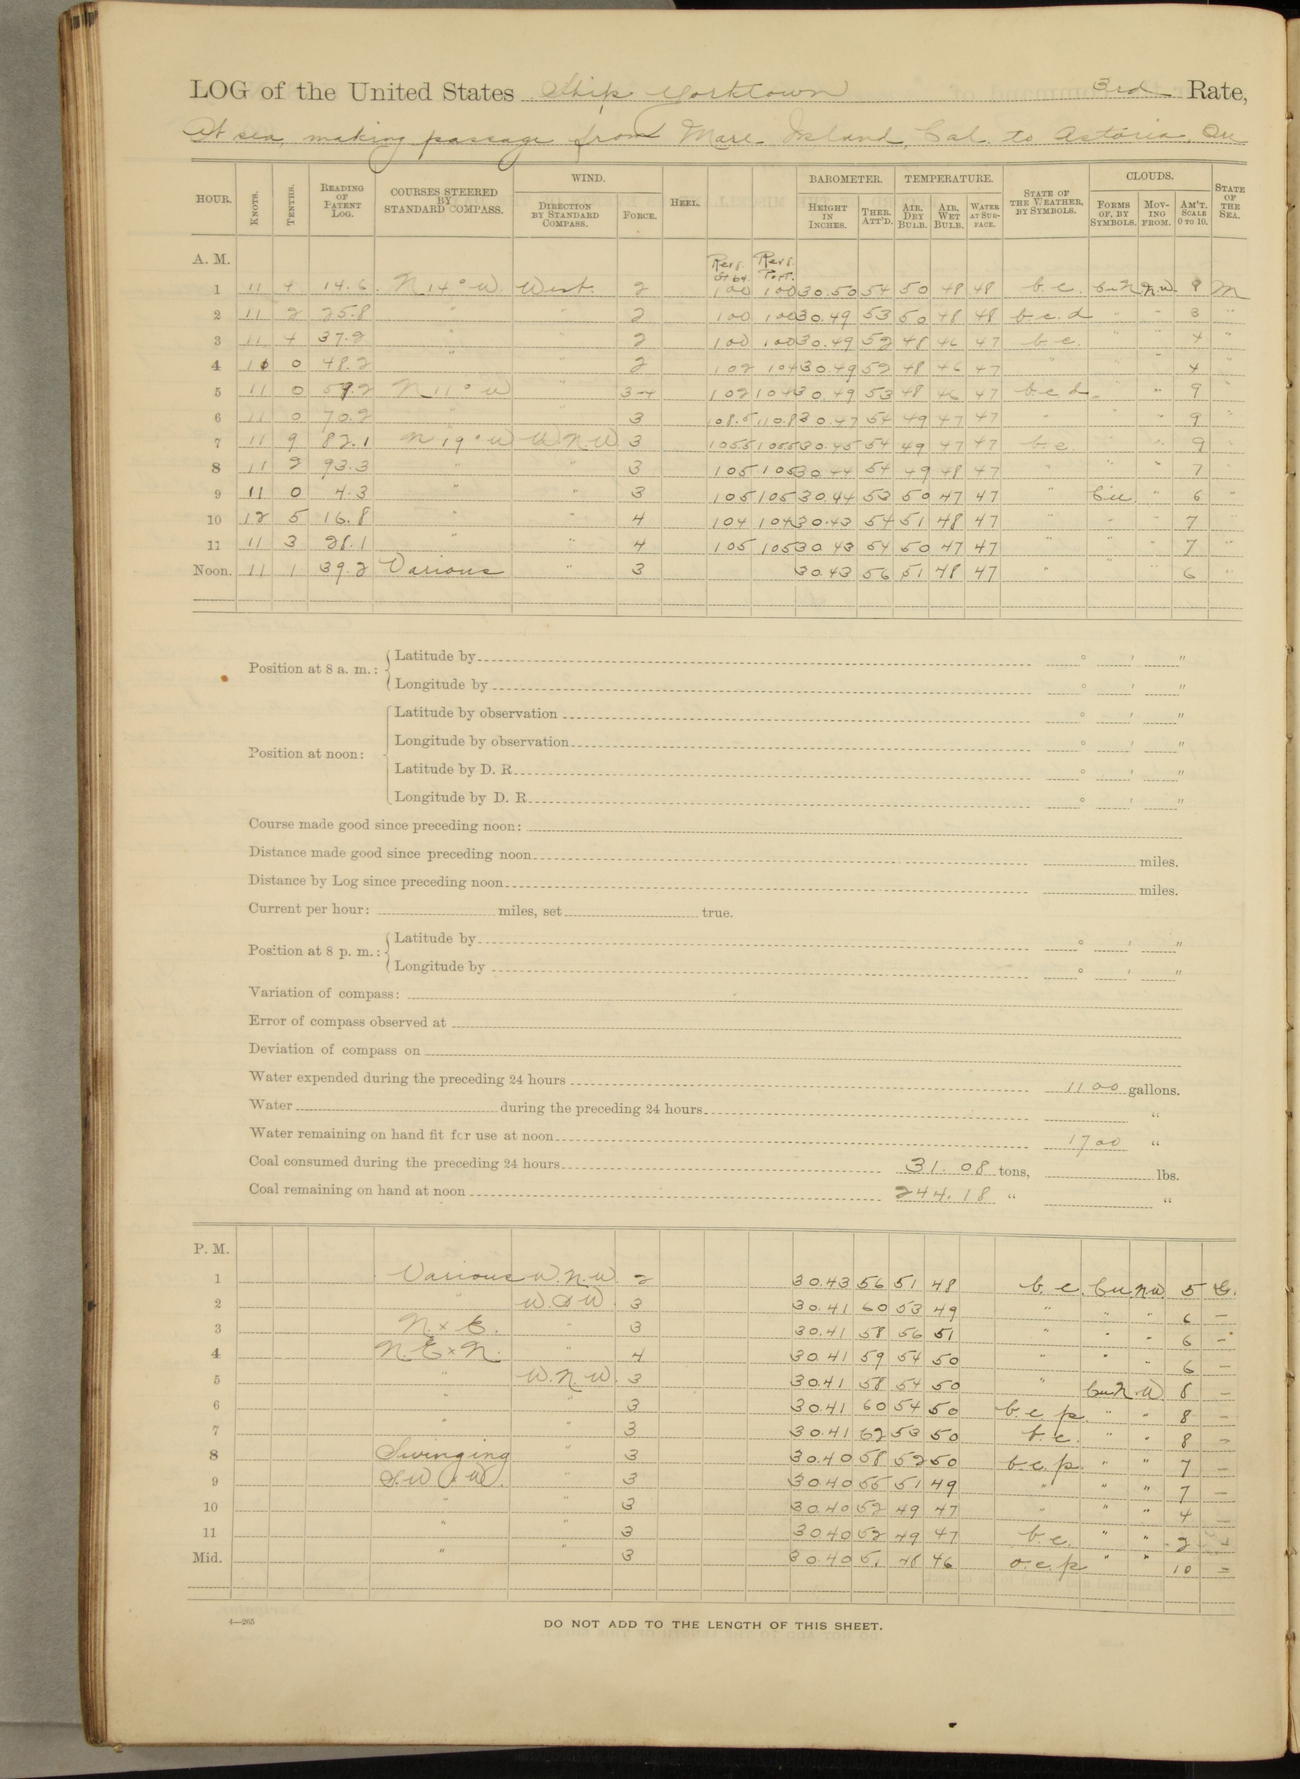 LOG of the United States Ship Yorktown 3rd Rate,
At sea, making passage from Mare Island, Cal. to Astoria, Ore
HOUR. KNOTS. TENTHS. READING OF PATENT LOG. COURSES STEERED BY STANDARD COMPASS. WIND. DIRECTION BY STANDARD COMPASS. FORCE. HEEL. BAROMETER. HEIGHT IN INCHES. THER. ATT'D. TEMPERATURE. AIR, DRY BULB. AIR, WET BULB. WATER AT SURFACE. STATE OF THE WEATHER, BY SYMBOLS. CLOUDS. FORMS OF, BY SYMBOLS. MOVING FROM. AM'T. SCALE 0 TO 10. STATE OF THE SEA.
A. M. Revs. Stbd. Revs. Port.
1 11 4 14.6 N 14° W West. 2 100 100 30.50 54 50 48 48 b.c. CuN N.W. 9 M
2 11 2 25.8 " " 2 100 100 30.49 53 50 48 48 b.c.d " " 3 "
3 11 4 37.2 " " 2 100 100 30.49 52 48 46 47 b.c. " " 4 "
4 11 0 48.2 " " 2 102 104 30.49 52 48 46 47 " " " 4 "
5 11 0 59.2 N 11° W " 3-4 102 104 30.49 53 48 46 47 b.c.d. " 9 "
6 11 0 70.2 " " 3 108.5 110.8 30.47 54 49 47 47 " " " 9 "
7 11 9 82.1 N 19° W W.N.W 3 105.5 105.5 30.45 54 49 47 47 b.c. " " 9 "
8 11 2 93.3 " " 3 105 105 30.44 54 49 48 47 " " " 7 "
9 11 0 4.3 " " 3 105 105 30.44 53 50 47 47 " Cu " 6 "
10 12 5 16.8 " " 4 104 104 30.43 54 51 48 47 " " " 7 "
11 11 3 28.1 " " 4 105 105 30.43 54 50 47 47 " " " 7 "
Noon. 11 1 39.2 Various " 3 30.43 56 51 48 47 " " " 6 "
Position at 8 a. m.: Latitude by ° ' "
Longitude by ° ' "
Position at noon: Latitude by observation ° ' "
Longitude by observation ° ' "
Latitude by D. R. ° ' "
Longitude by D. R. ° ' "
Course made good since preceding noon:
Distance made good since preceding noon miles.
Distance by Log since preceding noon miles.
Current per hour: miles, set true.
Position at 8 p. m.: Latitude by ° ' "
Longitude by ° ' "
Variation of compass:
Error of compass observed at
Deviation of compass on
Water expended during the preceding 24 hours 1100 gallons.
Water during the preceding 24 hours "
Water remaining on hand fit for use at noon 1700 "
Coal consumed during the preceding 24 hours 31.08 tons, lbs.
Coal remaining on hand at noon 244.18 " "
P. M.
1 Various W.N.W. 2 30.43 56 51 48 b.c. Cu N.W. 5 S.
2 " W.S.W. 3 30.41 60 53 49 " " " 6 -
3 N. x E. " 3 30.41 58 56 51 " " " 6 -
4 N.E x N. " 4 30.41 59 54 50 " " " 6 -
5 " W.N.W. 3 30.41 58 54 50 " CuN W 8 -
6 " " 3 30.41 60 54 50 b.c.p. " " 8 -
7 " " 3 30.41 62 53 50 b.c. " " 8 -
8 Swinging " 3 30.40 58 52 50 b.c.p. " " 7 -
9 S.W x W. " 3 30.40 55 51 49 " " " 7 -
10 " " 3 30.40 52 49 47 " " " 4 -
11 " " 3 30.40 52 49 47 b.c. " " 2 -
Mid. " " 3 30.40 51 48 46 o.c.p " " 10 -
4—265
DO NOT ADD TO THE LENGTH OF THIS SHEET.